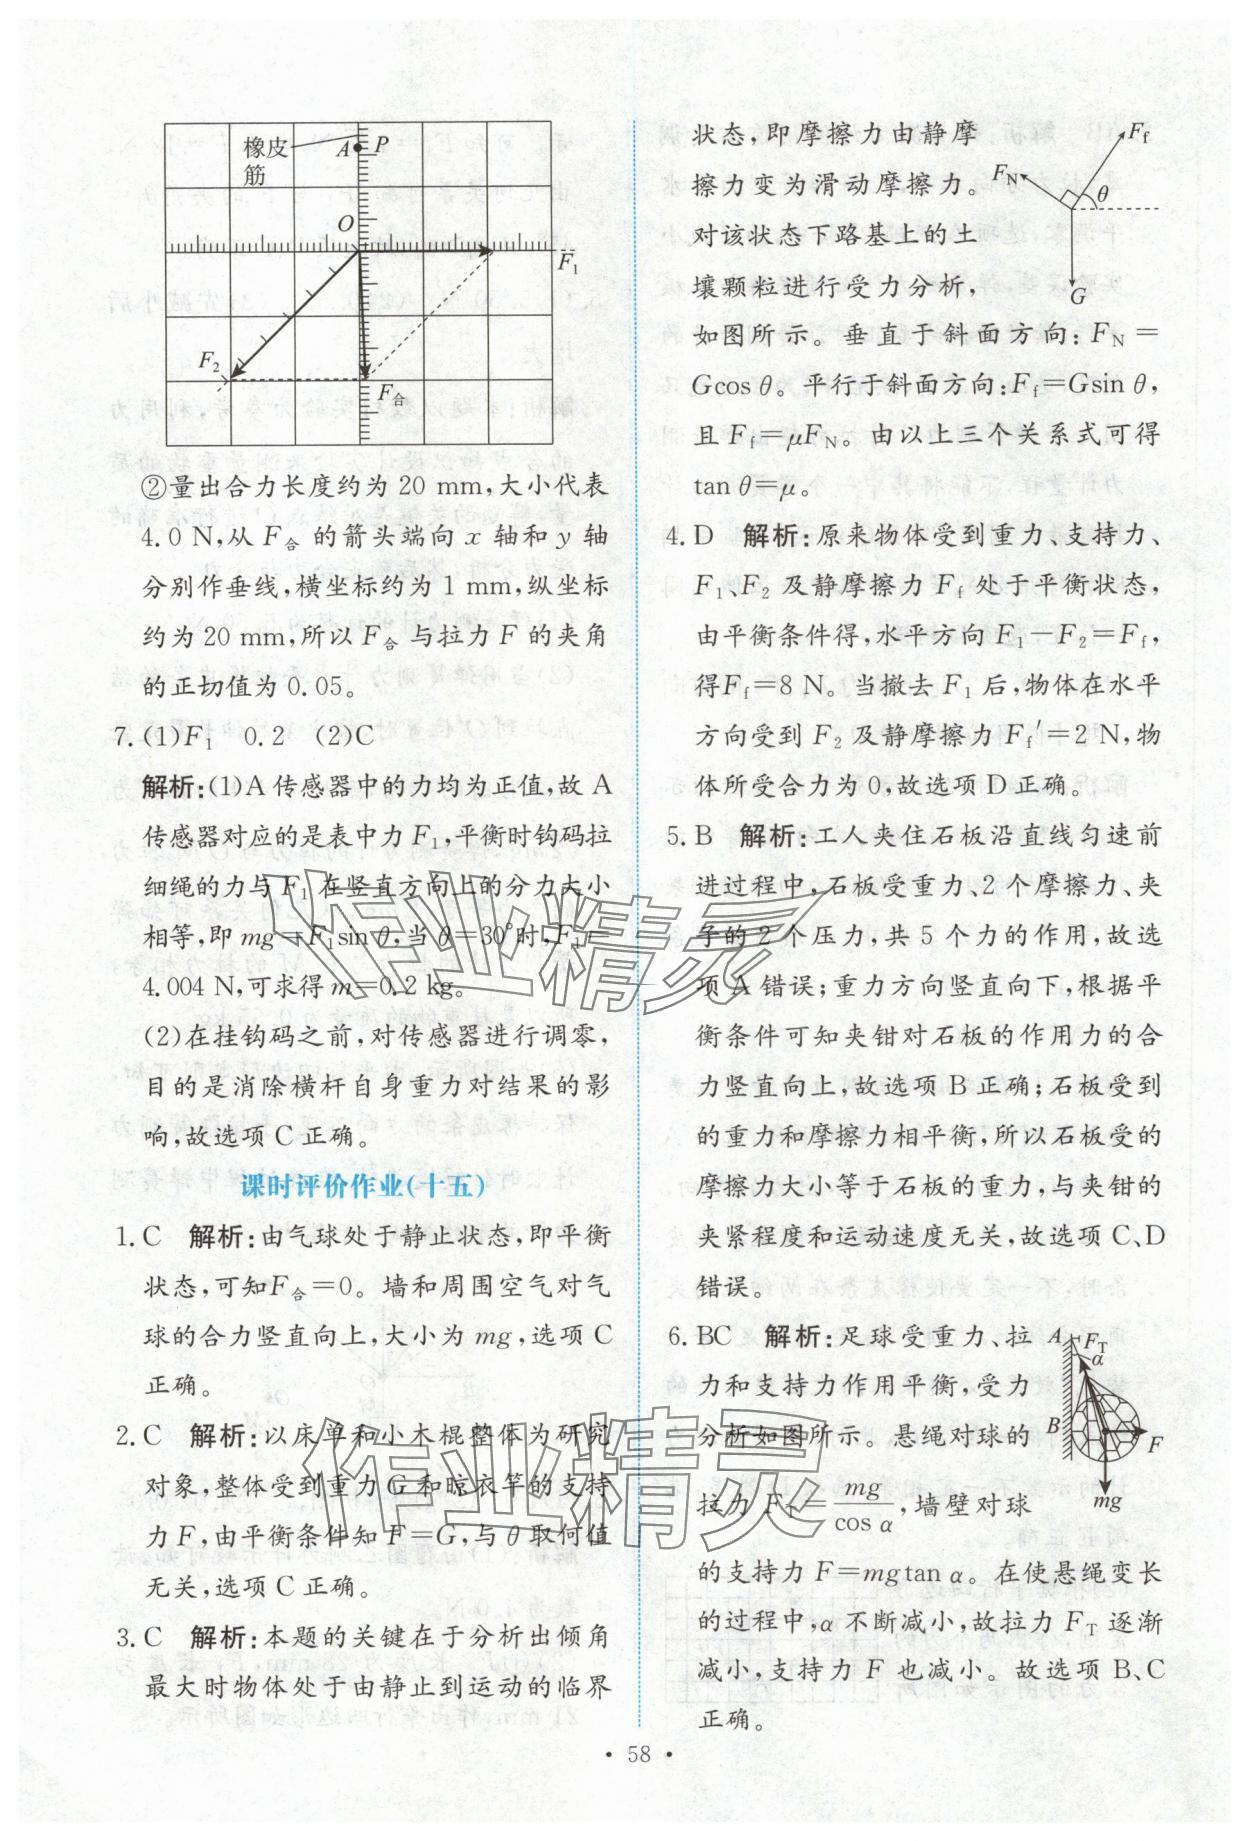 橡皮
筋
A
P
O
F₁
F₂
F合
②量出合力长度约为 20 mm,大小代表
4.0 N,从 F合 的箭头端向 x 轴和 y 轴
分别作垂线,横坐标约为 1 mm,纵坐标
约为 20 mm,所以 F合 与拉力 F 的夹角
的正切值为 0.05。
7. (1)F₁ 0.2 (2)C
解析:(1)A 传感器中的力均为正值,故 A
传感器对应的是表中力 F₁,平衡时钩码拉
细绳的力与 F₁ 在竖直方向上的分力大小
相等,即 mg=F₁sin θ,当 θ=30°时,F₁=
4.004 N,可求得 m=0.2 kg。
(2)在挂钩码之前,对传感器进行调零,
目的是消除横杆自身重力对结果的影
响,故选项 C 正确。
课时评价作业(十五)
1. C 解析:由气球处于静止状态,即平衡
状态,可知F合=0。墙和周围空气对气
球的合力竖直向上,大小为 mg,选项 C
正确。
2. C 解析:以床单和小木棍整体为研究
对象,整体受到重力 G 和晾衣竿的支持
力 F,由平衡条件知 F=G,与 θ 取何值
无关,选项 C 正确。
3. C 解析:本题的关键在于分析出倾角
最大时物体处于由静止到运动的临界
状态,即摩擦力由静摩
擦力变为滑动摩擦力。
对该状态下路基上的土
壤颗粒进行受力分析,
如图所示。垂直于斜面方向:F_N=
Gcos θ。平行于斜面方向:F_f=Gsin θ,
且 F_f=μF_N。由以上三个关系式可得
tan θ=μ。
F_f
F_N
θ
G
4. D 解析:原来物体受到重力、支持力、
F₁、F₂ 及静摩擦力 F_f 处于平衡状态,
由平衡条件得,水平方向 F₁−F₂=F_f,
得F_f=8 N。当撤去 F₁ 后,物体在水平
方向受到 F₂ 及静摩擦力 F_f′=2 N,物
体所受合力为 0,故选项 D 正确。
5. B 解析:工人夹住石板沿直线匀速前
进过程中,石板受重力、2 个摩擦力、夹
子的 2 个压力,共 5 个力的作用,故选
项 A 错误;重力方向竖直向下,根据平
衡条件可知夹钳对石板的作用力的合
力竖直向上,故选项 B 正确;石板受到
的重力和摩擦力相平衡,所以石板受的
摩擦力大小等于石板的重力,与夹钳的
夹紧程度和运动速度无关,故选项 C、D
错误。
6. BC 解析:足球受重力、拉
力和支持力作用平衡,受力
分析如图所示。悬绳对球的
拉力 F_T=mg/cos α,墙壁对球
的支持力 F=mgtan α。在使悬绳变长
的过程中,α 不断减小,故拉力 F_T 逐渐
减小,支持力 F 也减小。故选项 B、C
正确。
A
F_T
α
B
F
mg
作业精灵
作业精灵
• 58 •